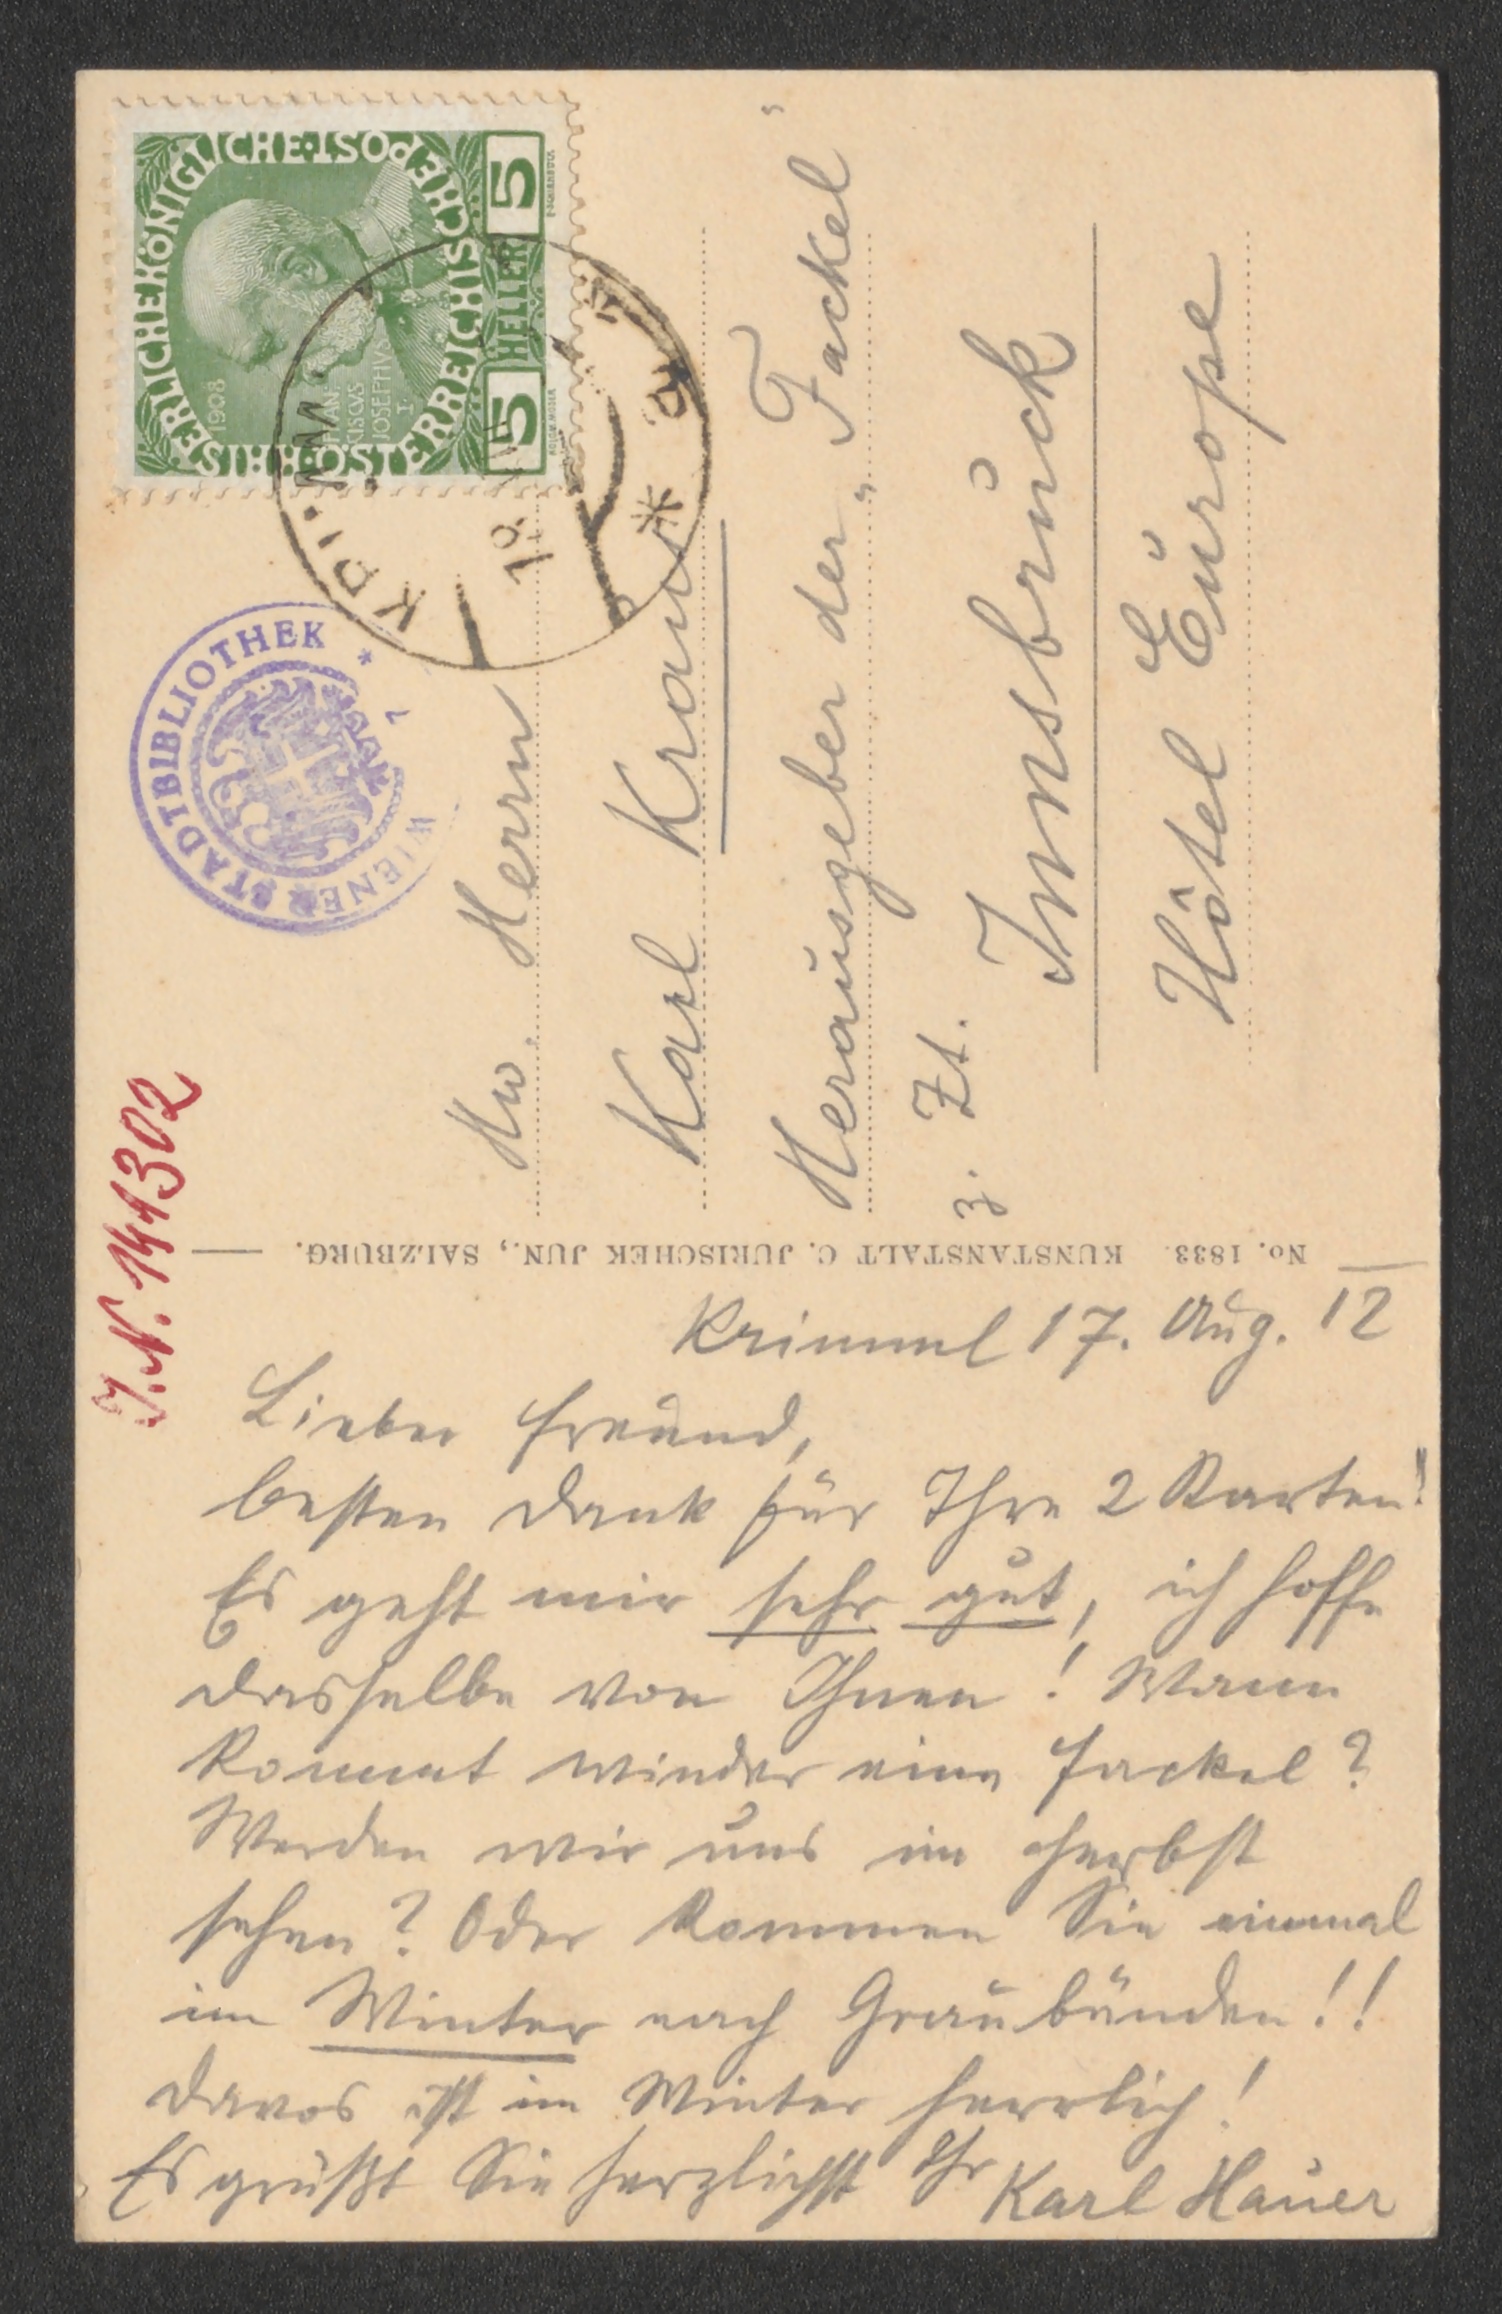 KAISERLICHE KÖNIGLICHE ÖSTERREICHISCHE POST
1908
FRAN-
CISCVS
JOSEPHVS
I.
5 HELLER 5
KRI
19
WIENER STADTBIBLIOTHEK *
J.N. 141302
Hw. Herrn
Karl Kraus
Herausgeber der „Fackel"
z. Zt. Innsbruck
Hôtel Europe
No. 1833. KUNSTANSTALT C. JURISCHEK JUN., SALZBURG.
Krimml 17. Aug. 12
Lieber Freund,
besten Dank für Ihre 2 Karten!
Es geht mir sehr gut, ich hoffe
dasselbe von Ihnen! Wann
kommt wieder eine Fackel?
Werden wir uns im Herbst
sehen? Oder kommen Sie einmal
im Winter nach Graubünden!!
Davos ist im Winter herrlich!
Es grüßt Sie herzlichst Ihr Karl Hauer